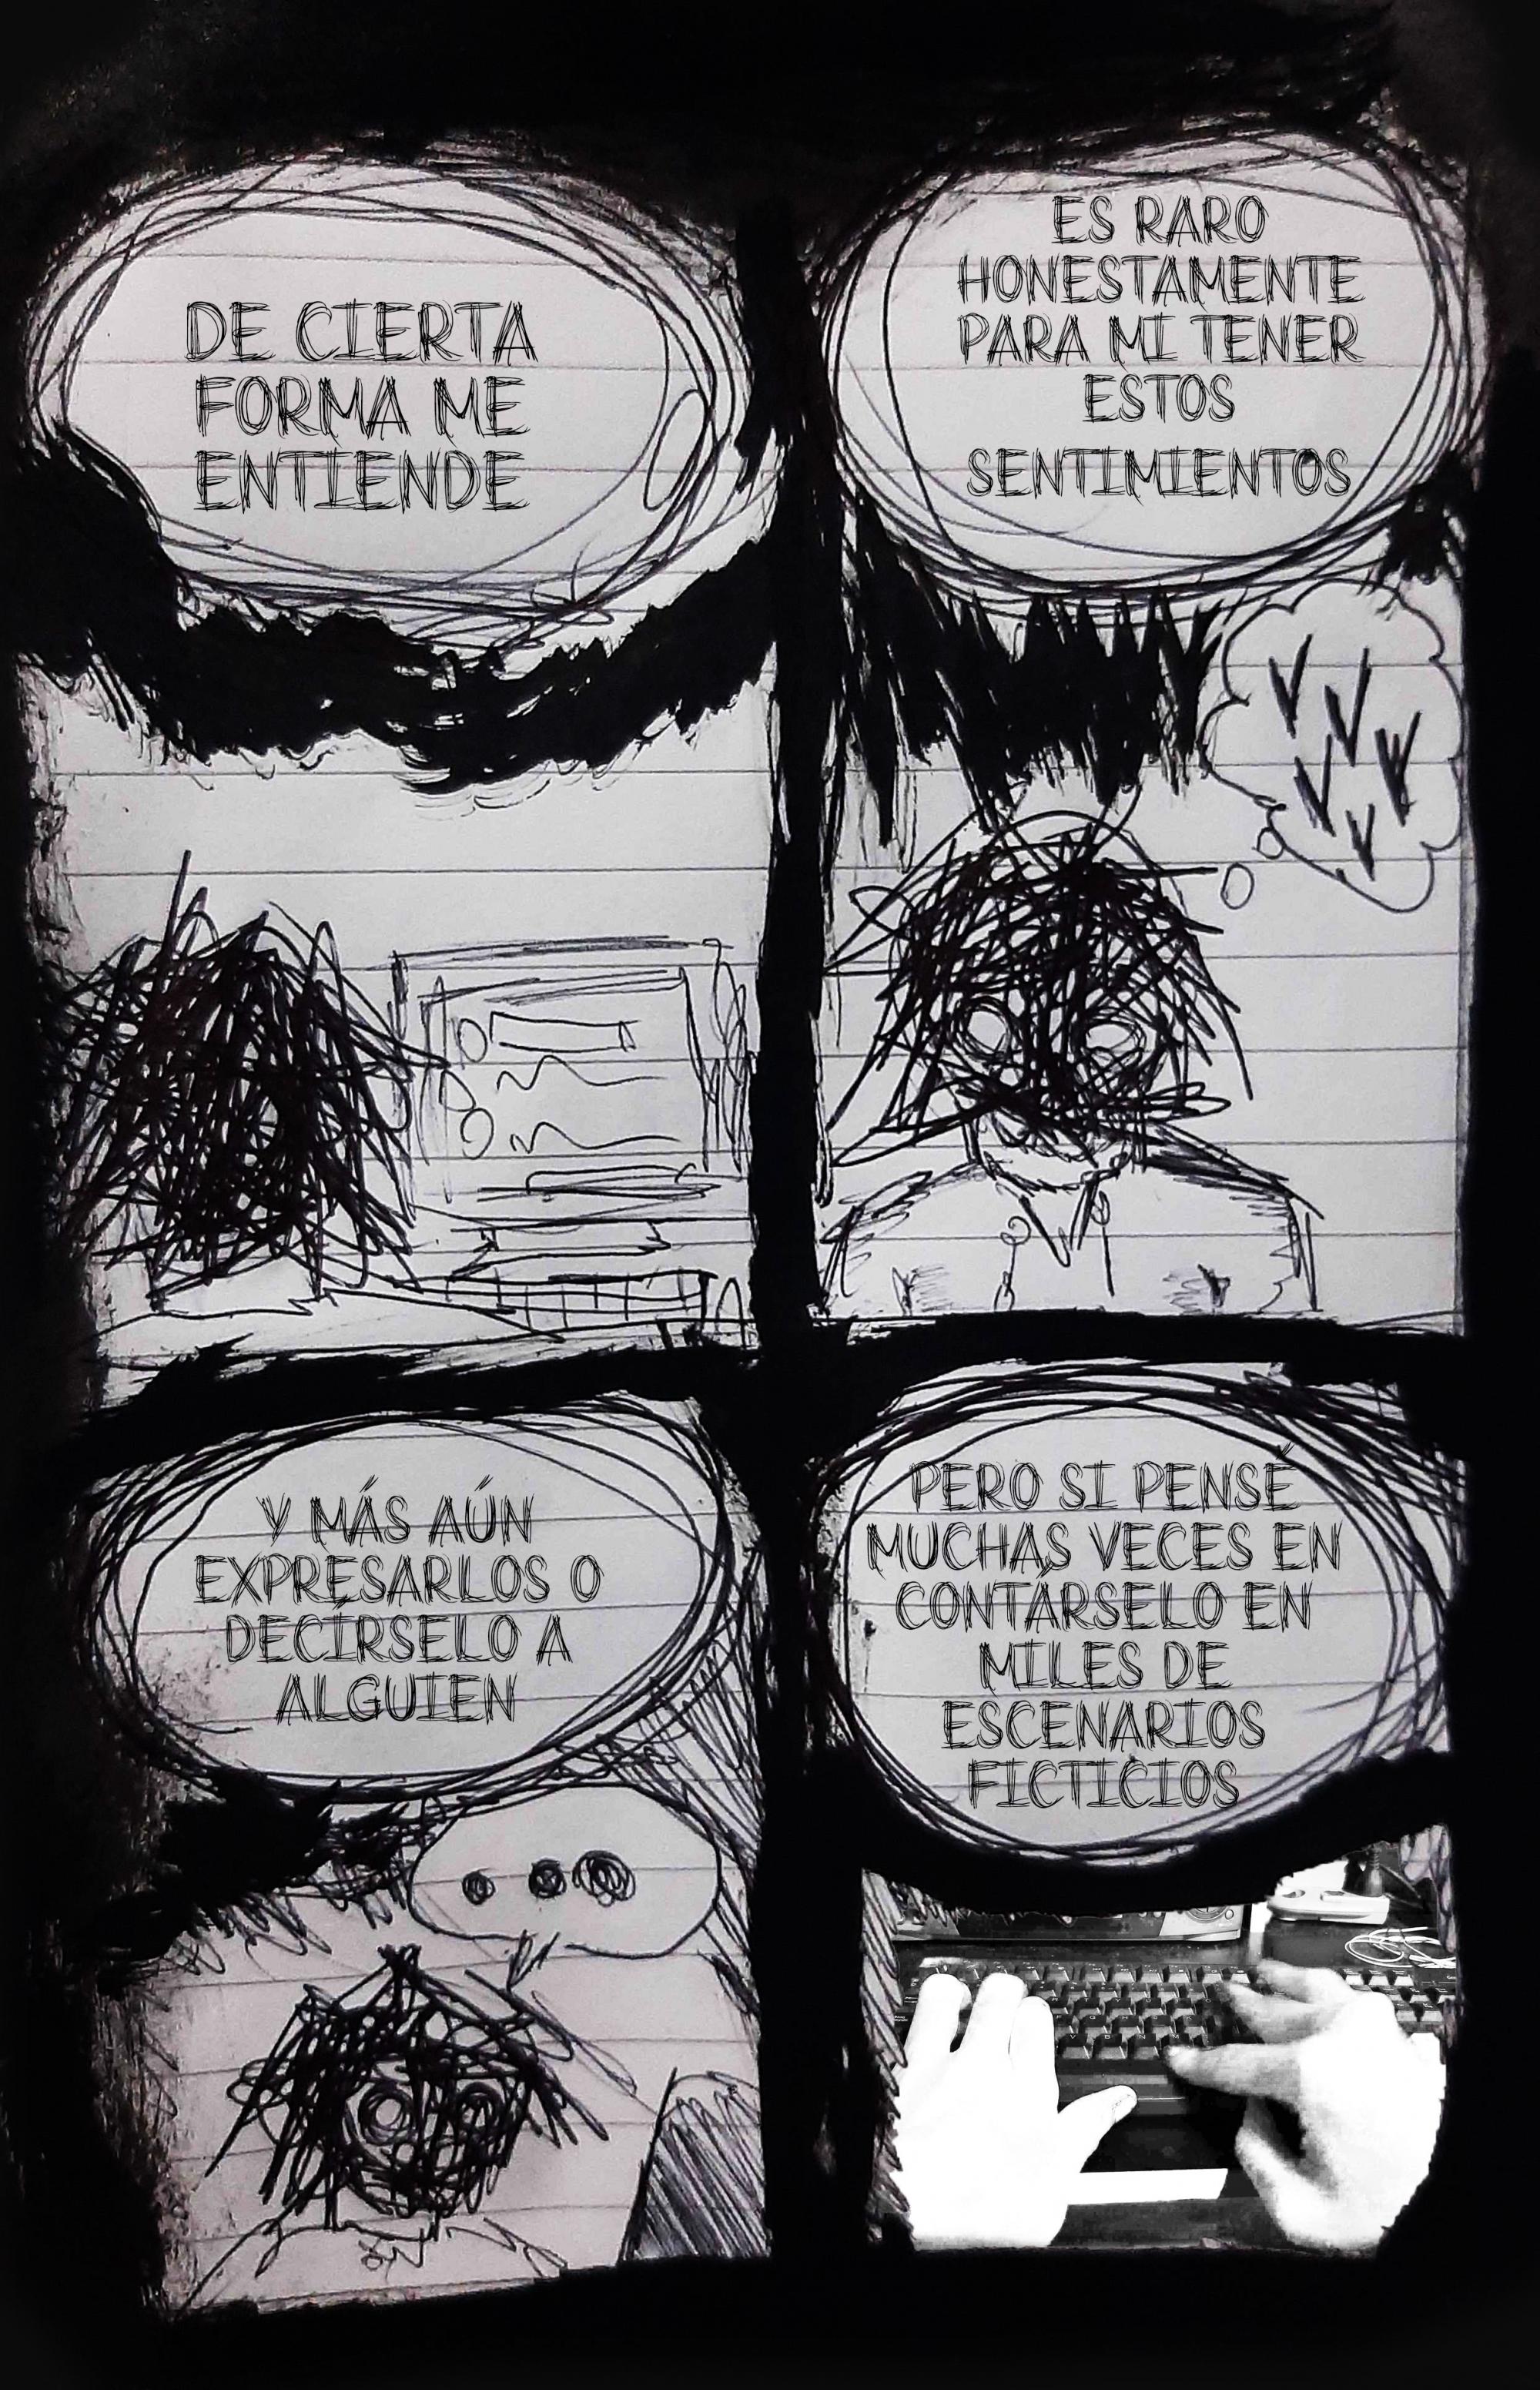 DE CIERTA
FORMA ME
ENTIENDE
ES RARO
HONESTAMENTE
PARA MI TENER
ESTOS
SENTIMIENTOS
Y MÁS AÚN
EXPRESARLOS O
DECÍRSELO A
ALGUIEN
PERO SI PENSÉ
MUCHAS VECES EN
CONTÁRSELO EN
MILES DE
ESCENARIOS
FICTICIOS